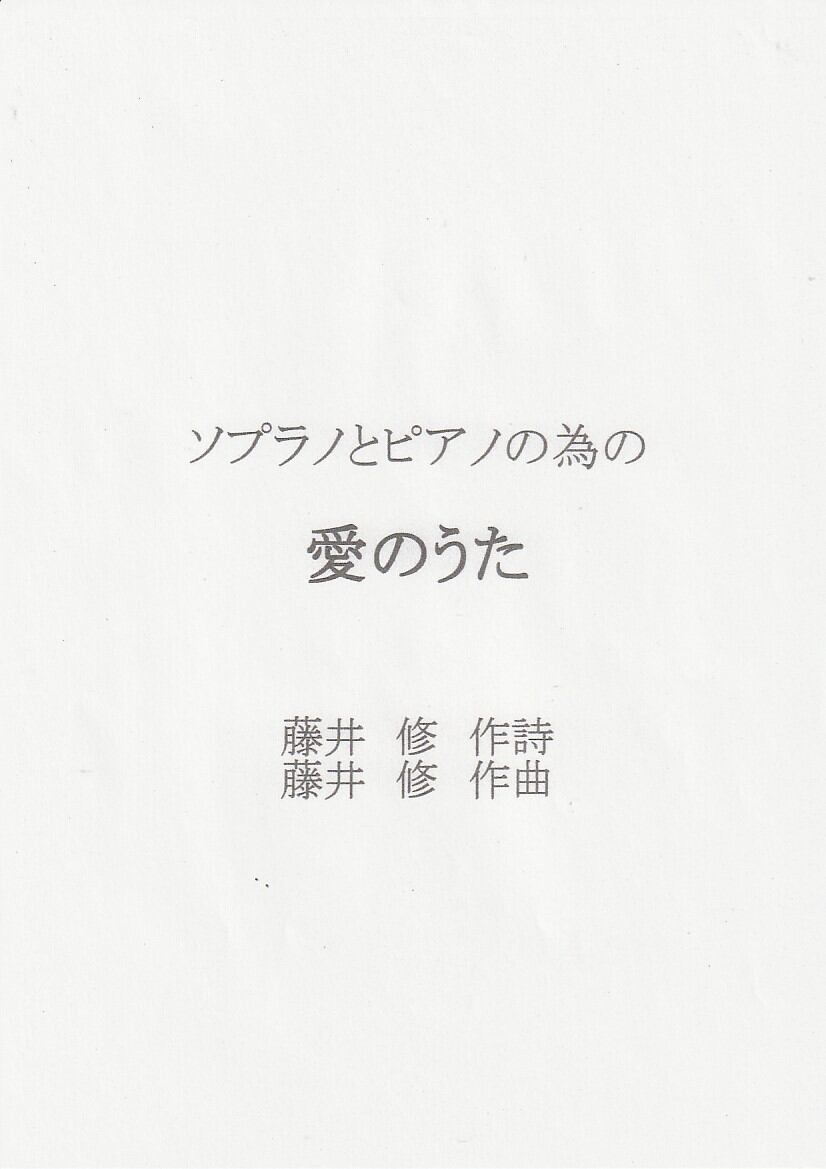 ソプラノとピアノの為の
愛のうた
藤井　修　作詩
藤井　修　作曲